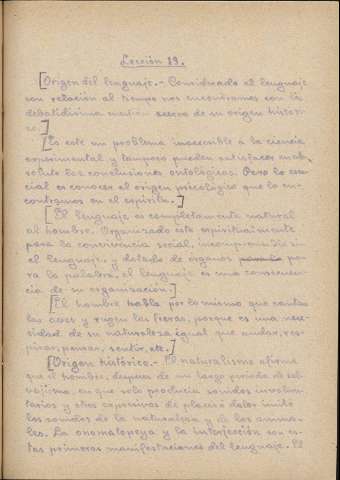 Lección 19.
[Origen del lenguaje.- Considerado el lenguaje
con relación al tiempo nos encontramos con la
debatidísima cuestión acerca de su origen históri-
co.]
[Es este un problema inaccesible a la ciencia
experimental y tampoco pueden satisfacer en ab-
soluto las conclusiones ontológicas. Pero lo esen-
cial es conocer el origen psicológico que lo en-
contramos en el espíritu.]
[El lenguaje es completamente natural
al hombre. Organizado este espiritualmente
para la convivencia social, incomprensible sin
el lenguaje, y dotado de órganos para la pa-
ra la palabra, el lenguaje es una consecuen-
cia de su organización.]
[El hombre habla por lo mismo que cantan
las aves y rugen las fieras, porque es una nece-
sidad de su naturaleza igual que andar, res-
pirar, pensar, sentir, etc.]
[Origen histórico.- El naturalismo afirma
que el hombre, después de un largo periodo de sal-
vajismo, en que solo producía sonidos involun-
tarios y otros expresivos de placer o dolor imitó
los sonidos de la naturaleza y de los anima-
les. La onomatopeya y la interjección son es-
tas primeras manifestaciones del lenguaje. El